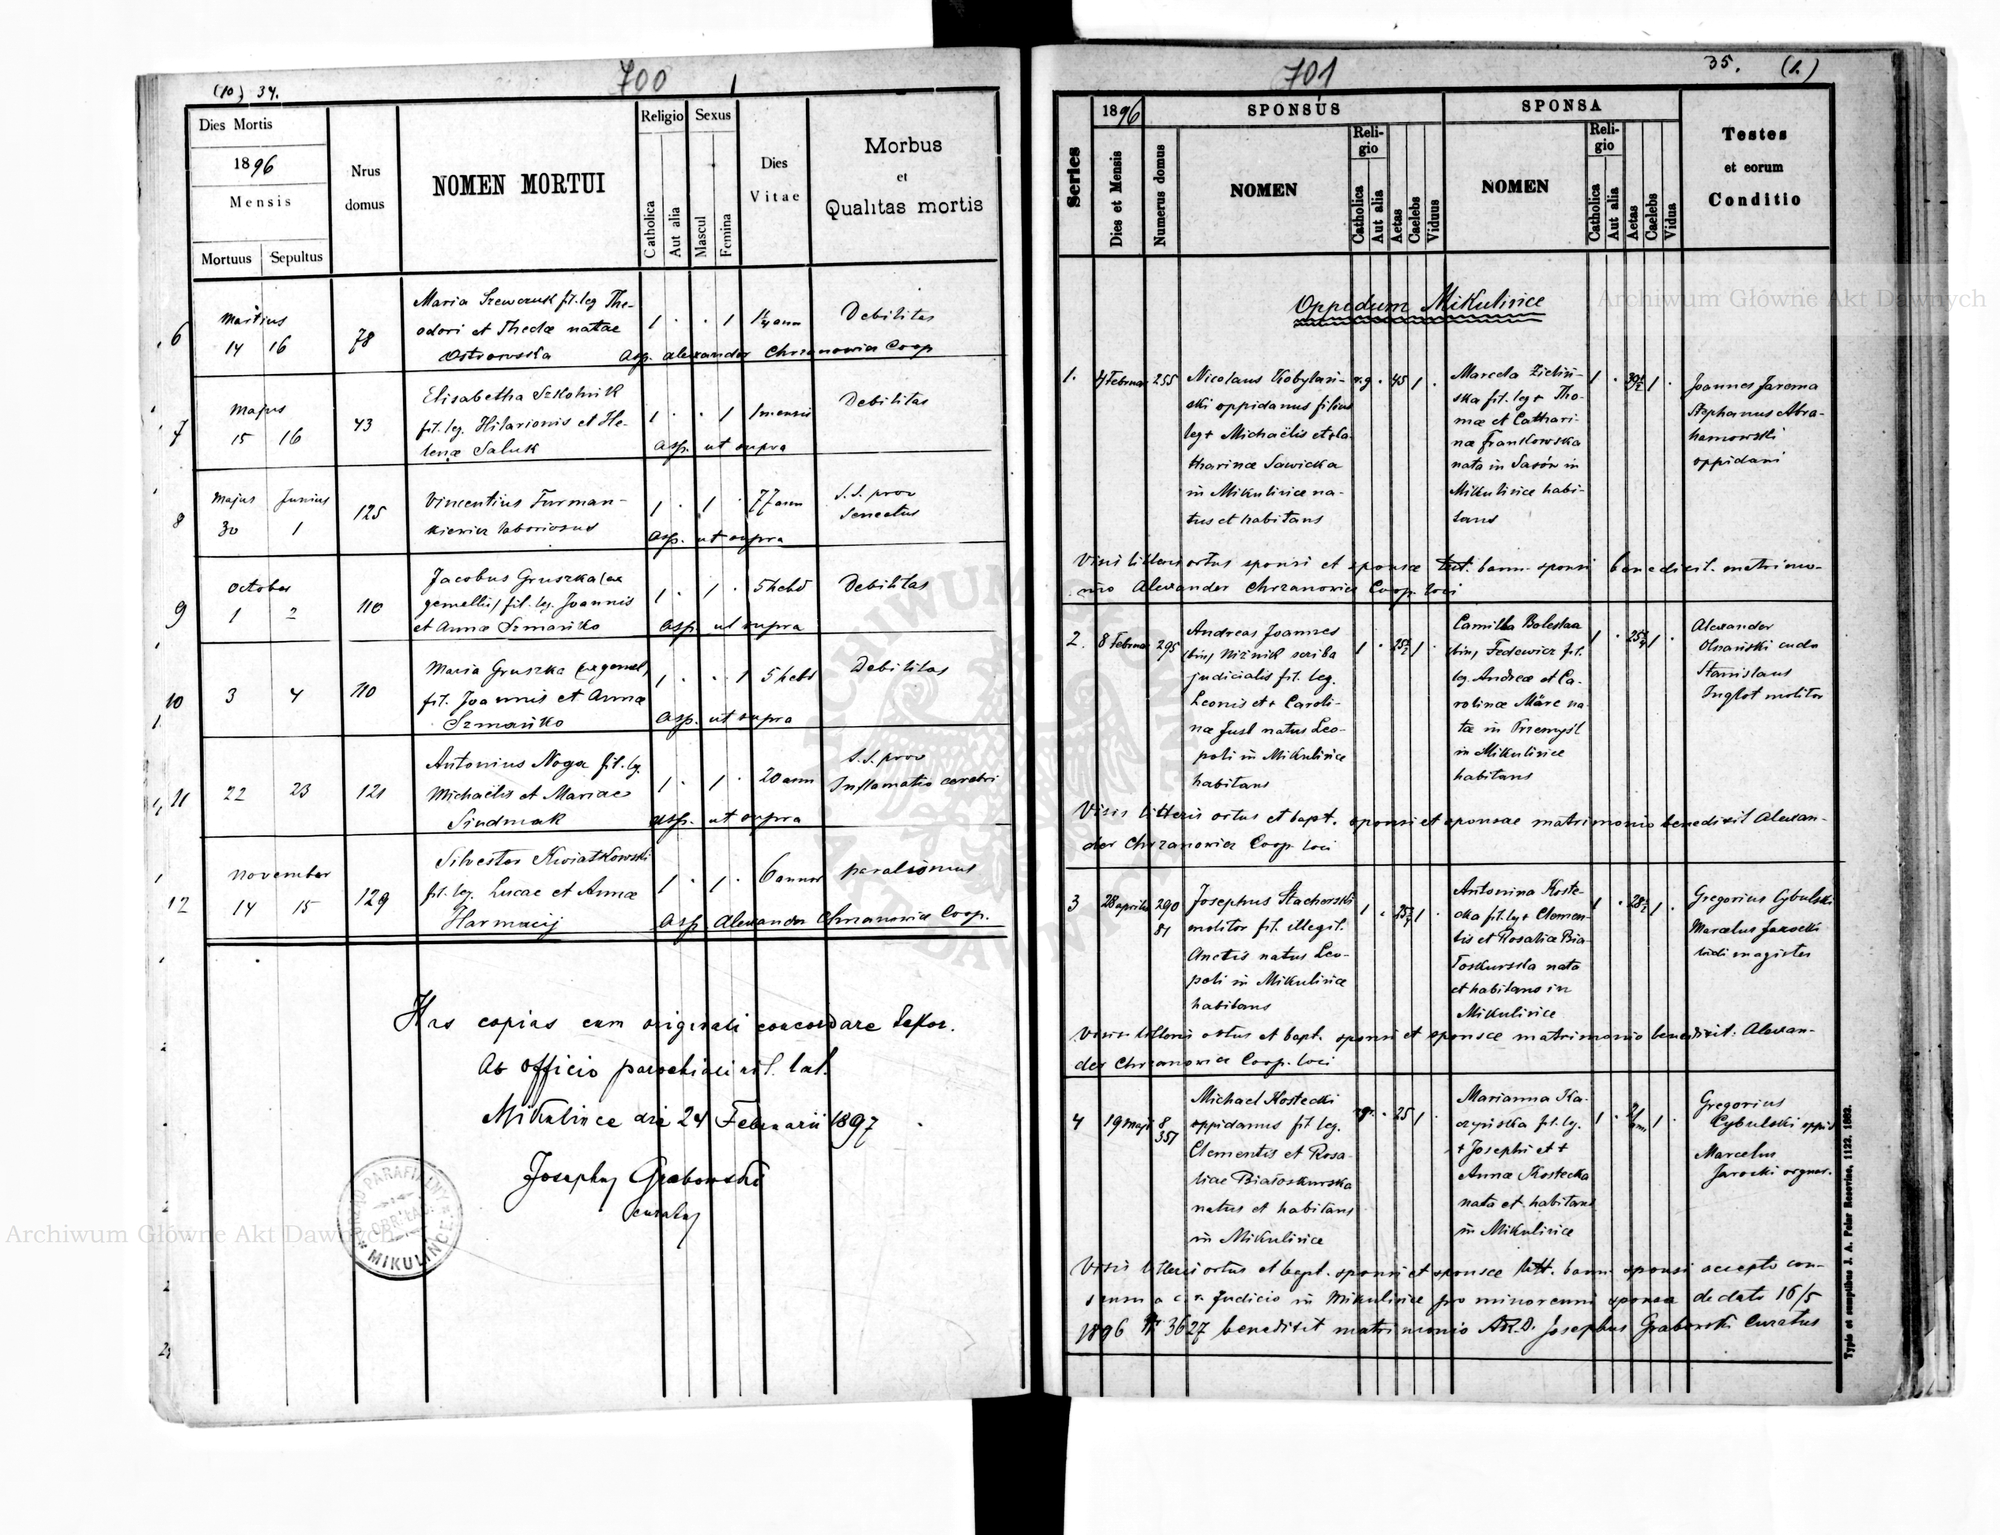 (10) 34.
700
Dies Mortis
1896
Mensis
Mortuus Sepultus
Nrus domus
NOMEN MORTUI
Religio
Catholica
Aut alia
Sexus
Mascul
Femina
Dies Vitae
Morbus
et
Qualitas mortis
6
Martius
14 16
78
Maria Szewczuk fil. leg The-
odori et Theclæ natae
Ostrowska
1 · · 1
1¼ ann
Debilitas
Asp. Alexander Chrzanowicz Coop
7
Majus
15 16
43
Elisabetha Szkolnik
fil. leg. Hilarionis et He-
lenæ Saluk
1 · · 1
1 mensis
Debilitas
Asp. ut supra
8
Majus Junius
30 1
125
Vincentius Furman-
kiewicz laboriosus
1 · 1 ·
77 ann
S.S. prov
Senectus
Asp. ut supra
9
October
1 2
110
Jacobus Gruszka (ex
gemellis) fil. leg. Joannis
et Annæ Szmańko
1 · 1 ·
5 hebd
Debilitas
Asp. ut supra
10
3 4
110
Maria Gruszka (ex gemel)
fil. Joannis et Annæ
Szmańko
1 · · 1
5 hebd
Debilitas
Asp. ut supra
11
22 23
121
Antonius Noga fil. lg.
Michaëlis et Mariae
Sindmak
1 · 1 ·
20 ann
S.S. prov
Inflamatio cerebri
Asp. ut supra
12
November
14 15
129
Silvester Kwiatkowski
fil. leg. Lucae et Annæ
Harmacij
1 · 1 ·
6 annor
paralismus
Asp Alexander Chrzanowicz Coop.
Has copias cum originali concordare testor.
Ab officio parochiali rit. lat.
Mikulince die 24 Februarii 1897
Josephus Grabowski
curatus
URZĄD PARAFIALNY
OBR. ŁAC.
MIKULINCE
701
35. (1.)
Series
1896
Dies et Mensis
Numerus domus
SPONSUS
NOMEN
Religio
Catholica
Aut alia
Aetas
Caelebs
Viduus
SPONSA
NOMEN
Religio
Catholica
Aut alia
Aetas
Caelebs
Vidua
Testes
et eorum
Conditio
Oppidum Mikulince
1.
4 Februar
255
Nicolaus Kobylań-
ski oppidanus filius
leg + Michaëlis et + Ca-
tharinæ Sawicka
in Mikulince na-
tus et habitans
r.g · 45 1 ·
Marcela Zieliń-
ska fil. leg + Tho-
mæ et Cathari-
næ Frankowska
nata in Sasów in
Mikulince habi-
tans
1 · 1 ·
Joannes Jarema
Stephanus Abra-
hamowski
oppidani
Visis litteris ortus sponsi et sponsæ test. bann. sponsi benedixit. matrimo-
nio Alexander Chrzanowicz Coop. loci
2.
8 Februar
295
Andreas Joannes
(bin) Niżnik scriba
judicialis fil. leg.
Leonis et + Caroli-
næ Just natus Leo-
poli in Mikulince
habitans
1 · 1 ·
Camilla Boleslaa
(bin) Fedewicz fil.
lg. Andreæ et Ca-
rolinæ Märc na-
ta in Przemyśl
in Mikulince
habitans
1 · 1 ·
Alexander
Olszański
Stanislaus
Inglot molitor
Visis litteris ortus et bapt. sponsi et sponsae matrimonio benedixit Alexan-
der Chrzanowicz Coop. loci
3
28 aprilis
290
81
Josephus Stachorski
molitor fil. illegit.
Anctis natus Leo-
poli in Mikulince
habitans
1 · 1 ·
Antonina Koste-
cka fil. lg + Clemen-
tis et Rosaliæ Bia-
łoskurska nata
et habitans in
Mikulince
1 · 1 ·
Gregorius Cybulski
Marcelus Jarocki
ludi magister
Visis litteris ortus et bapt. sponsi et sponsæ matrimonio benedixit. Alexan-
der Chrzanowicz Coop. loci
4
19 maji
8
357
Michael Kostecki
oppidanus fil leg.
Clementis et Rosa-
liae Białoskurska
natus et habitans
in Mikulince
rg. · 25 1 ·
Marianna Ka-
czyńska fil. lg.
+ Josephi et +
Annæ Kostecka
nata et habitans
in Mikulince
1 · 1 ·
Gregorius
Cybulski oppid
Marcelus
Jarocki organ.
Visis litteris ortus et bapt. sponsi et sponsæ litt. bann. sponsi accepto con-
sensu a c. r. Judicio in Mikulince pro minorenni sponsa de dato 16/5
1896 Nr 3627 benedixit matrimonio A.R.D. Josephus Grabowski Curatus
Typis et sumptibus J. A. Pelar Resoviae, 1122. 1892.
Archiwum Główne Akt Dawnych
Archiwum Główne Akt Dawnych
ARCHIWUM GŁÓWNE AKT DAWNYCH